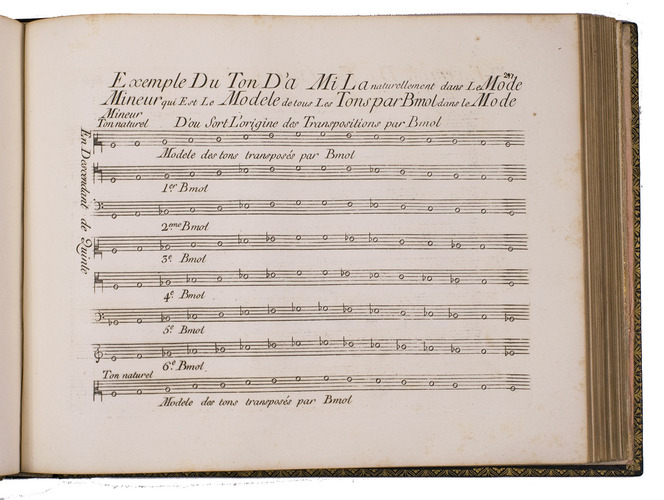 287
Exemple Du Ton D'a Mi La naturellement dans Le Mode
Mineur qui Est Le Modele de tous Les Tons par Bmol dans le Mode
Mineur
Ton naturel D'ou Sort L'origine des Transpositions par Bmol
En Descendant de Quinte
Modele des tons transposés par Bmol
1er Bmol
2eme Bmol
3e. Bmol
4e. Bmol
5e Bmol
6e. Bmol
Ton naturel
Modele des tons transposés par Bmol